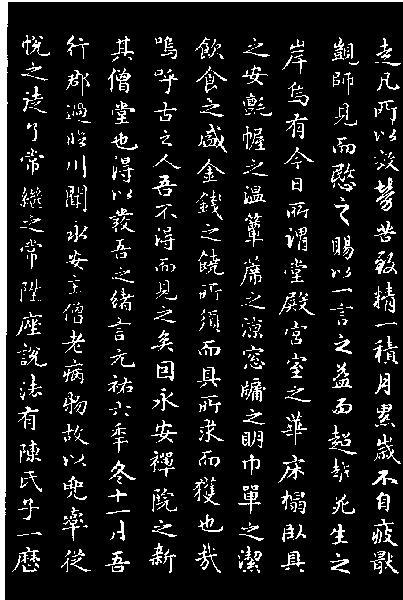 走凡所以效勞苦致精一積月累歲不自疲厭
覬師見而愍之賜以一言之益而超越死生之
岸烏有今日所謂堂殿宮室之華床榻臥具
之安氈幄之温簟席之涼窓牖之明巾單之潔
飲食之盛金錢之饒所須而具所求而獲也哉
嗚呼古之人吾不得而見之矣因永安禪院之新
其僧堂也得以發吾之緒言元祐六季冬十一月吾
行郡過臨川聞永安主僧老病物故以兜率從
悅之徒了常繼之常陞座說法有陳氏子一歷